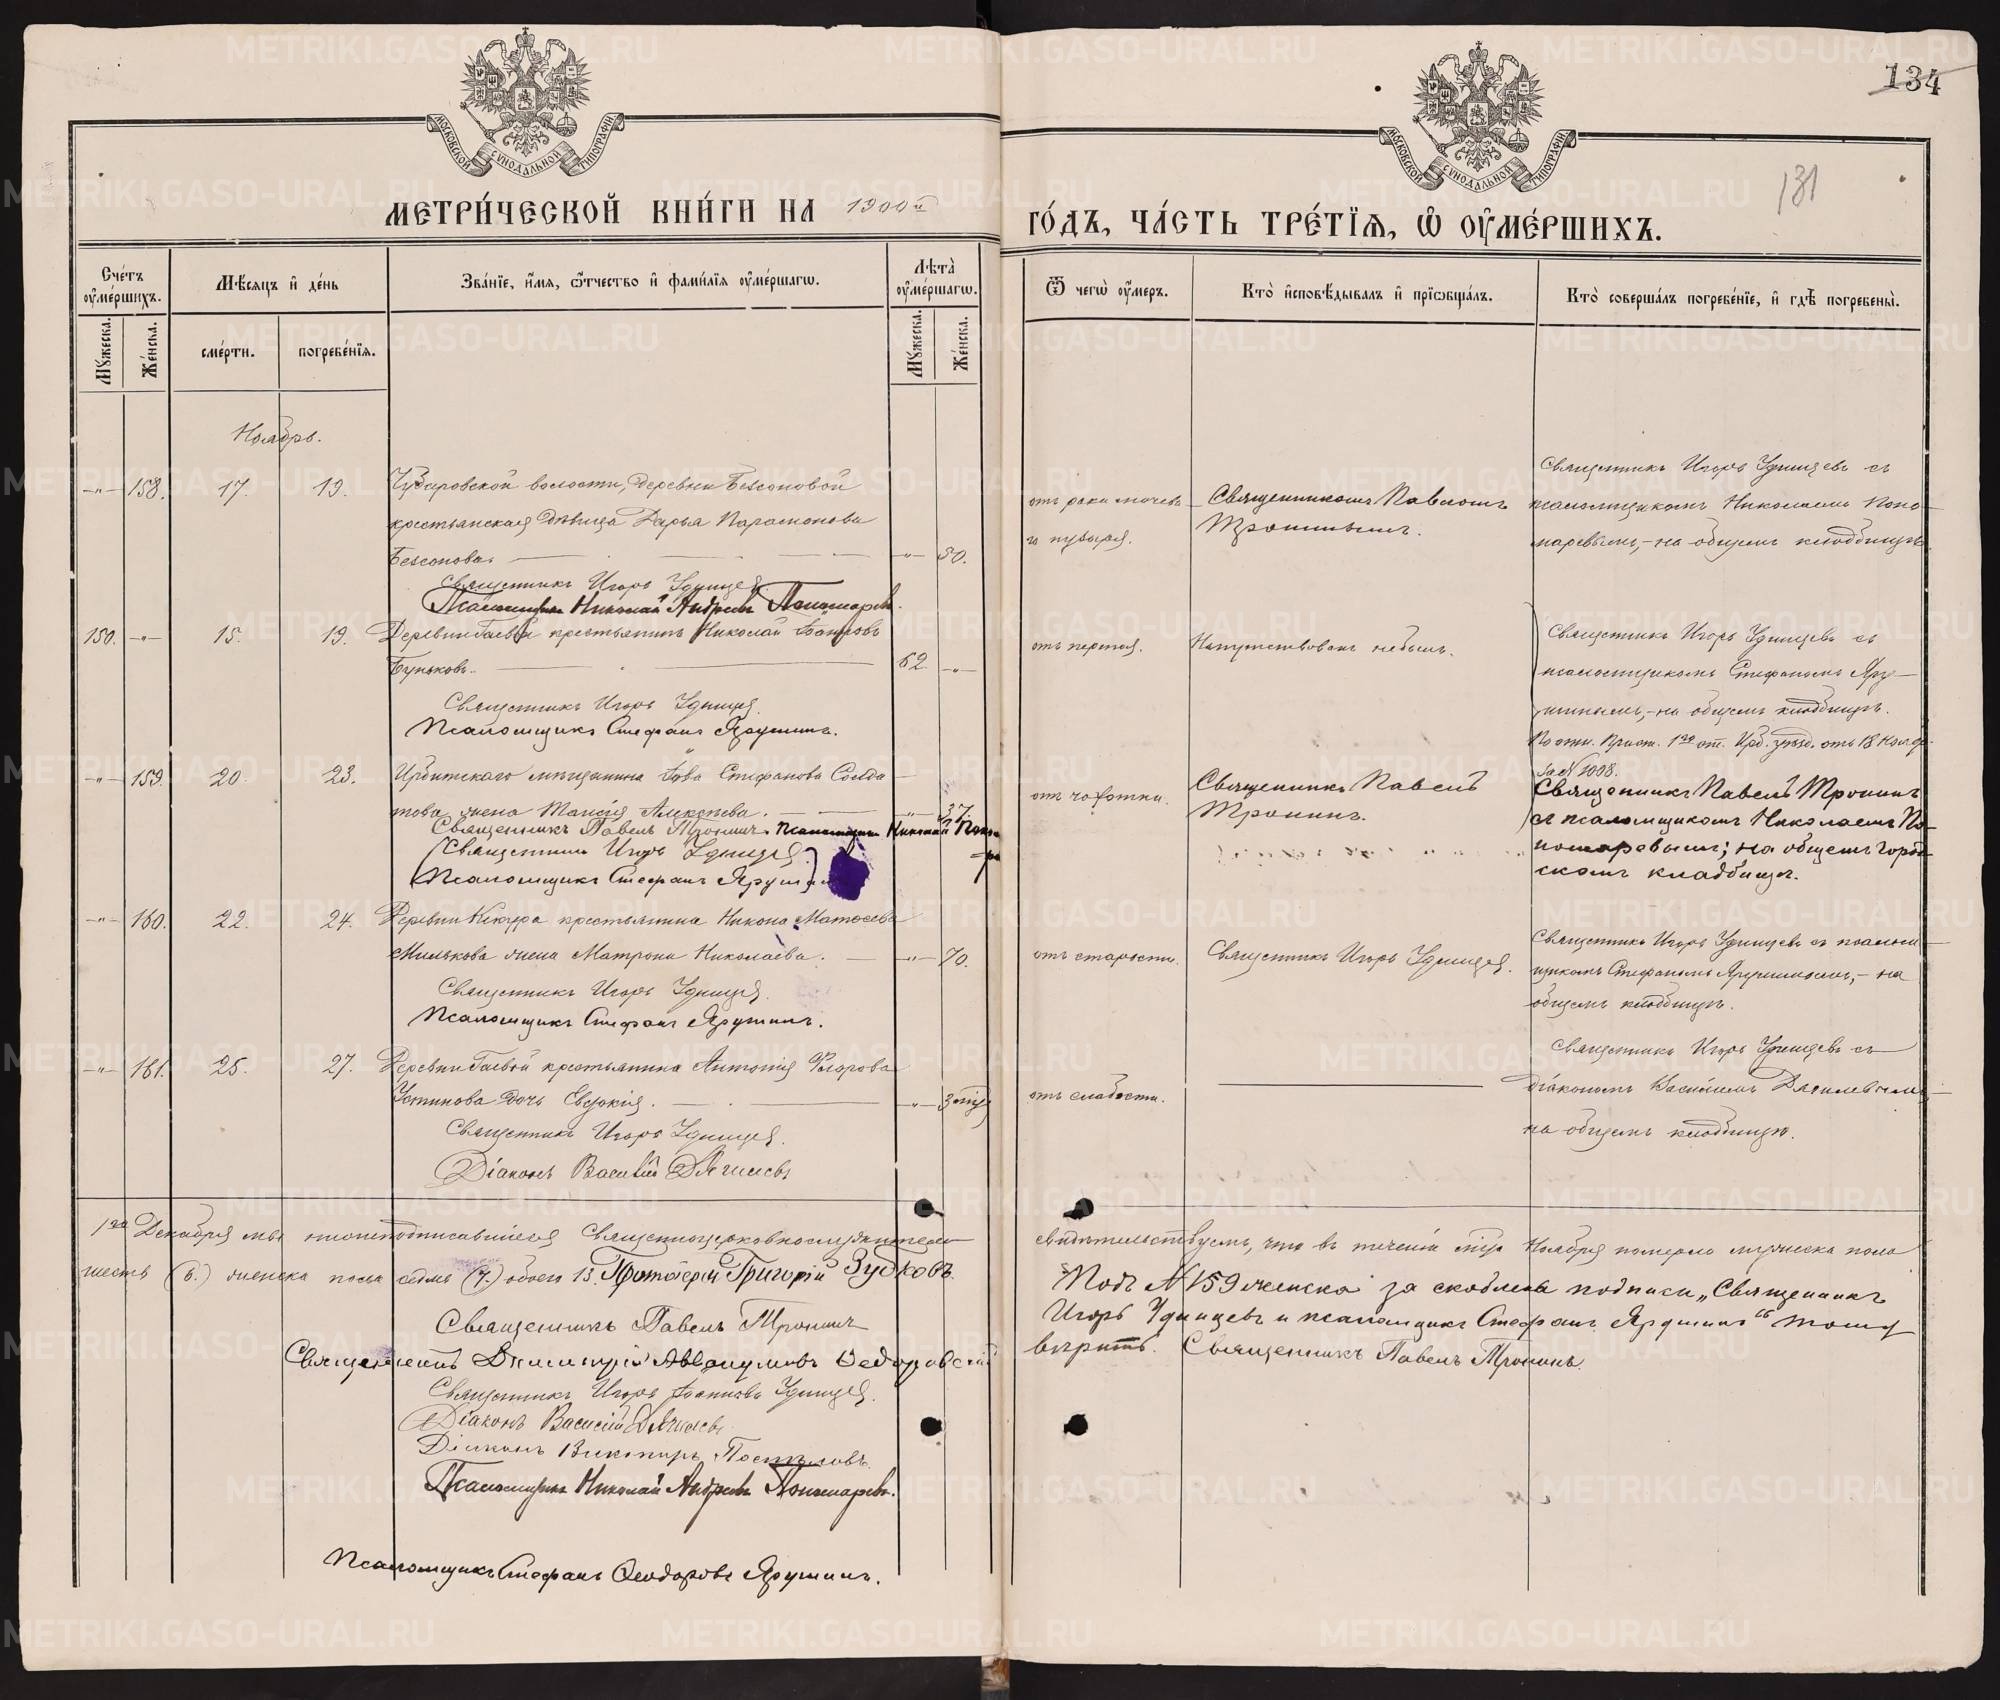 134
131
МОСКОВСКОЙ СѴНОДАЛЬНОЙ ТИПОГРАФІИ
МОСКОВСКОЙ СѴНОДАЛЬНОЙ ТИПОГРАФІИ
МЕТРИ́ЧЕСКОЙ КНИ́ГИ НА 1900й
ГО́ДЪ, ЧА́СТЬ ТРЕ́ТІѦ, Ѽ ОУ҆МЕ́РШИХЪ.
Сче́тъ оу҆ме́ршихъ.
Мꙋжеска.
Же́нска.
Мѣ́сѧцъ и҆ де́нь
сме́рти.
погребе́нїѧ.
Зва́нїе, и҆́мѧ, ѻ҆́тчество и҆ фами́лїѧ оу҆ме́ршагѡ.
Лѣта̀ оу҆ме́ршагѡ.
Мꙋ́жеска.
Же́нска.
Ѿ чегѡ̀ оу҆́меръ.
Кто̀ и҆сповѣ́дывалъ и҆ прїѡбща́лъ.
Кто̀ соверша́лъ погребе́нїе, и҆ гдѣ̀ погребены̀.
Ноябрь.
—„— 158. 17. 19. волости, деревни Безсоновой
крестьянская дѣвица Дарья Парамонова
Безсонова. —„— 50.
Священникъ Игорь Удинцев
Псаломщикъ Николай Андреевъ Пономаревъ.
от рака мочева-
го пузыря.
Священникомъ Павломъ
Трониномъ.
Священникъ Игорь Удинцевъ съ
псаломщикомъ Николаемъ Поно-
маревымъ, на общемъ кладбищѣ.
150. —„— 15. 19. Деревни Гаевой крестьянинъ Николай Іоанновъ
Буньковъ. 62 —„—
Священникъ Игорь Удинцев.
Псаломщикъ Стефанъ Ярушинъ.
Напутствованъ небылъ.
Священникъ Игорь Удинцевъ съ
псаломщикомъ Стефаномъ Яру-
шинымъ, на общемъ кладбищѣ.
По отн. Прист. 1го от. Ирб. уѣзд. отъ 18 Нояб.
за № 1008.
—„— 159. 20. 23. Ирбитскаго мѣщанина Льва Стефанова Солда-
това жена Таисія —„— 37
Священникъ Павелъ Тронинъ. Псаломщикъ Николай Поно-
(Священникъ Игорь Удинцев)
(Псаломщикъ Стефанъ Ярушин
отъ чахотки.
Священникъ Павелъ
Тронинъ.
Священникъ Павелъ Тронинъ
съ псаломщикомъ Николаемъ По-
номаревымъ; на общемъ город-
скомъ кладбищѣ.
—„— 160. 22. 24. Деревни крестьянина Никона Матвеева
Милькова жена Матрона Николаева. —„— 70.
Священникъ Игорь Удинцев.
Псаломщикъ Стефанъ Ярушинъ.
отъ старости.
Священникъ Игорь Удинцев.
Священникъ Игорь Удинцевъ съ псалом-
щикомъ Стефаномъ Ярушинымъ, на
общемъ кладбищѣ.
—„— 161. 25. 27. Деревни Гаевой крестьянина Антонія Флорова
Устинова дочь Евдокія. —„— 3
Священникъ Игорь Удинцев.
Діаконъ Василій Дягилевъ
отъ слабости.
Священникъ Игорь Удинцевъ съ
діакономъ Василіемъ Дягилевымъ,
на общемъ кладбищѣ.
1го Декабря мы нижеподписавшіеся Священноцерковнослужители
свидѣтельствуемъ, что въ теченіи м-ца Ноября померло мужеска пола
шесть (6.) женска пола семь (7.) обоего 13. Протоіерей Григорій Зубковъ.
Священникъ Павелъ Тронинъ
Священникъ Димитрій Аввакумовъ Ѳедоровскій
Священникъ Игорь Іоанновъ Удинцев.
Діаконъ Василій Дягилевъ
Діаконъ Викторъ Постыловъ.
Псаломщикъ Николай Андреевъ Пономаревъ.
Псаломщикъ Стефанъ Ѳеодоровъ Ярушинъ.
Подъ № 159 женска за скоблена подписи „Священникъ
Игорь Удинцевъ и псаломщикъ Стефанъ Ярушинъ“ тому
вѣрить. Священникъ Павелъ Тронинъ.
METRIKI.GASO-URAL.RU